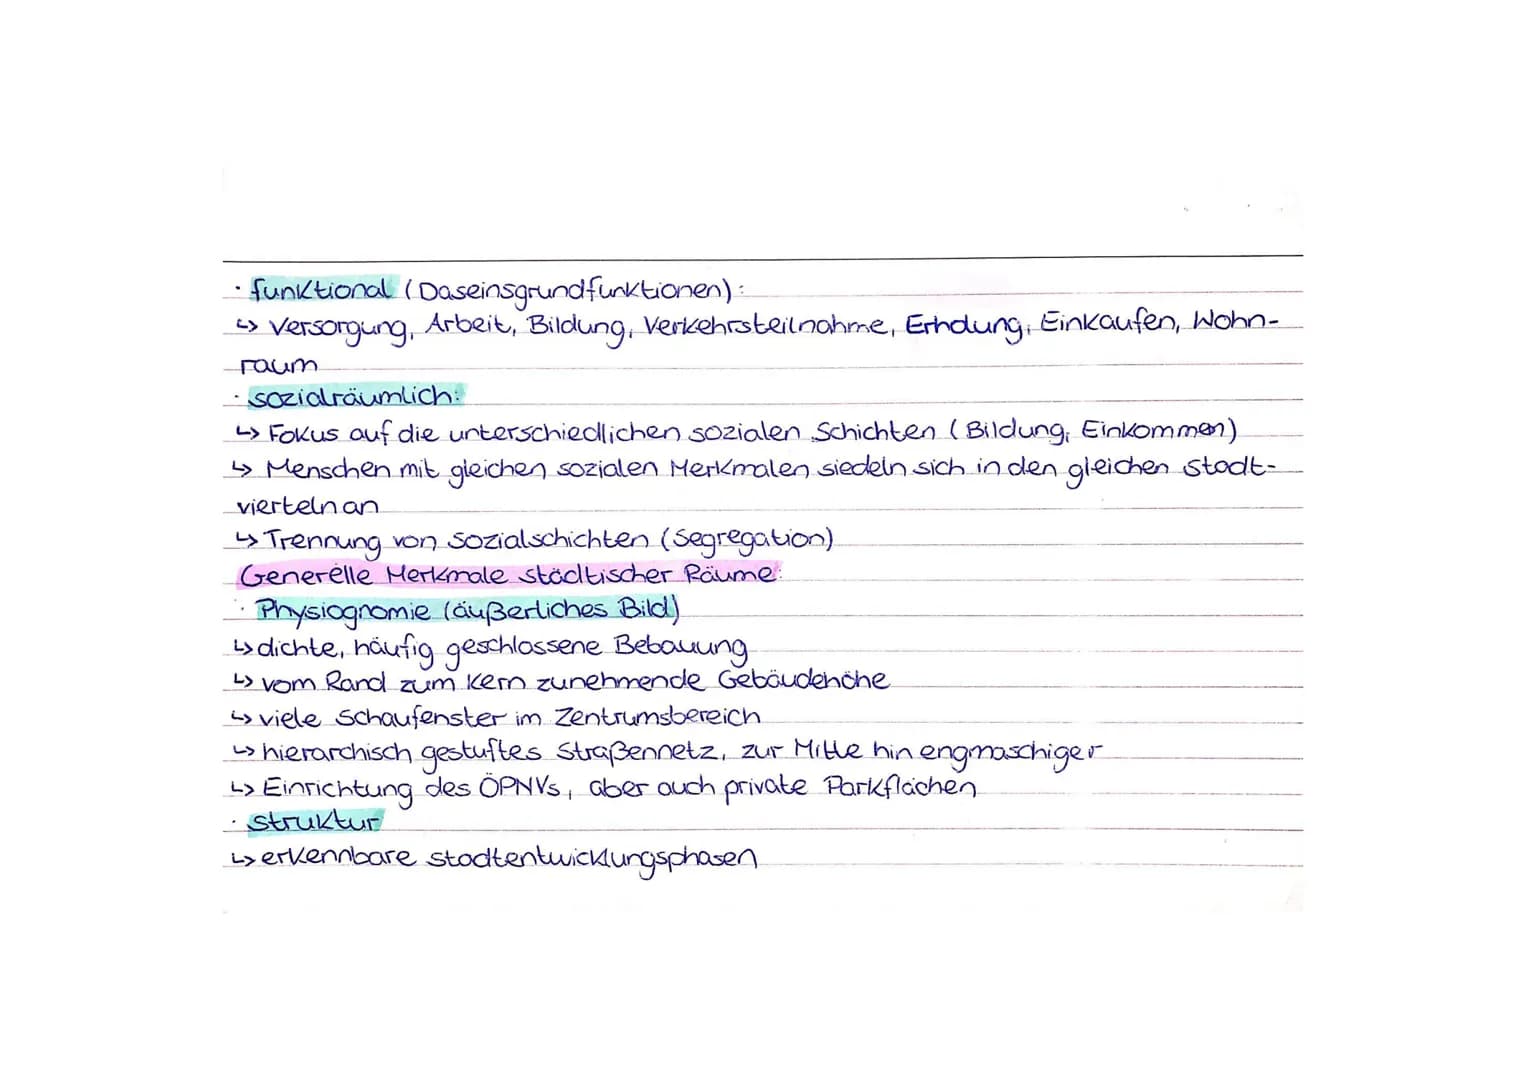 · funktional (Daseinsgrundfunktionen):
↳ Versorgung, Arbeit, Bildung, Verkehrsteilnahme, Erholung, Einkaufen, Wohn-
raum
· sozialräumlich:
↳ Fokus auf die unterschiedlichen sozialen Schichten (Bildung, Einkommen)
↳ Menschen mit gleichen sozialen Merkmalen siedeln sich in den gleichen Stadt-
vierteln an
↳ Trennung von Sozialschichten (Segregation)
Generelle Merkmale städtischer Räume:
· Physiognomie (äußerliches Bild)
↳ dichte, häufig geschlossene Bebauung
↳ vom Rand zum Kern zunehmende Gebäudehöhe
↳ viele Schaufenster im Zentrumsbereich
↳ hierarchisch gestuftes Straßennetz, zur Mitte hin engmaschiger
↳ Einrichtung des ÖPNVs, aber auch private Parkflächen
· Struktur
↳ erkennbare Stadtentwicklungsphasen